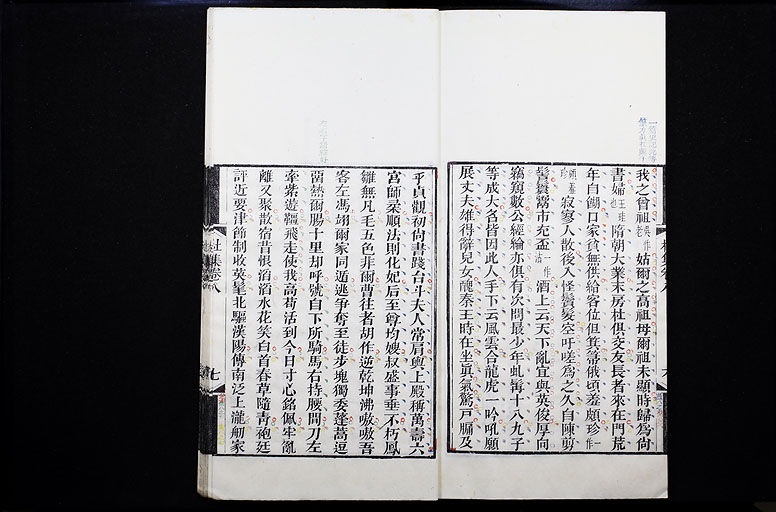 我之曾祖吳作老姑爾之高祖母爾祖未顯時歸爲尚
書婦王珪也隋朝大業末房杜俱交友長者來在門荒
年自餬口家貧無供給客位但箕帚俄頃羞頗珍一作
頗羞珍寂寥人散後入怪鬢髮空吁嗟爲之久自陳剪
髻鬟鬻市充盃一作沽酒上云天下亂宜與英俊厚向
竊窺數公經綸亦俱有次問最少年虬髯十八九子
等成大名皆因此人手下云風雲合龍虎一吟吼願
展丈夫雄得辭兒女醜秦王時在坐眞氣驚戸牖及
乎貞觀初尚書踐台斗夫人常肩輿上殿稱萬壽六
宮師柔順法則化妃后至尊均嫂叔盛事垂不朽鳳
雛無凡毛五色非爾曹往者胡作逆乾坤沸嗷嗷吾
客左馮翊爾家同遁逃爭奪至徒步塊獨委蓬蒿逗
留熱爾腸十里却呼號自下所騎馬右持腰間刀左
牽紫遊韁飛走使我高苟活到今日寸心銘佩牢亂
離又聚散宿昔恨滔滔水花笑白首春草隨青袍廷
評近要津節制收英髦北驅漢陽傳南泛上瀧舠家
杜集卷八
七